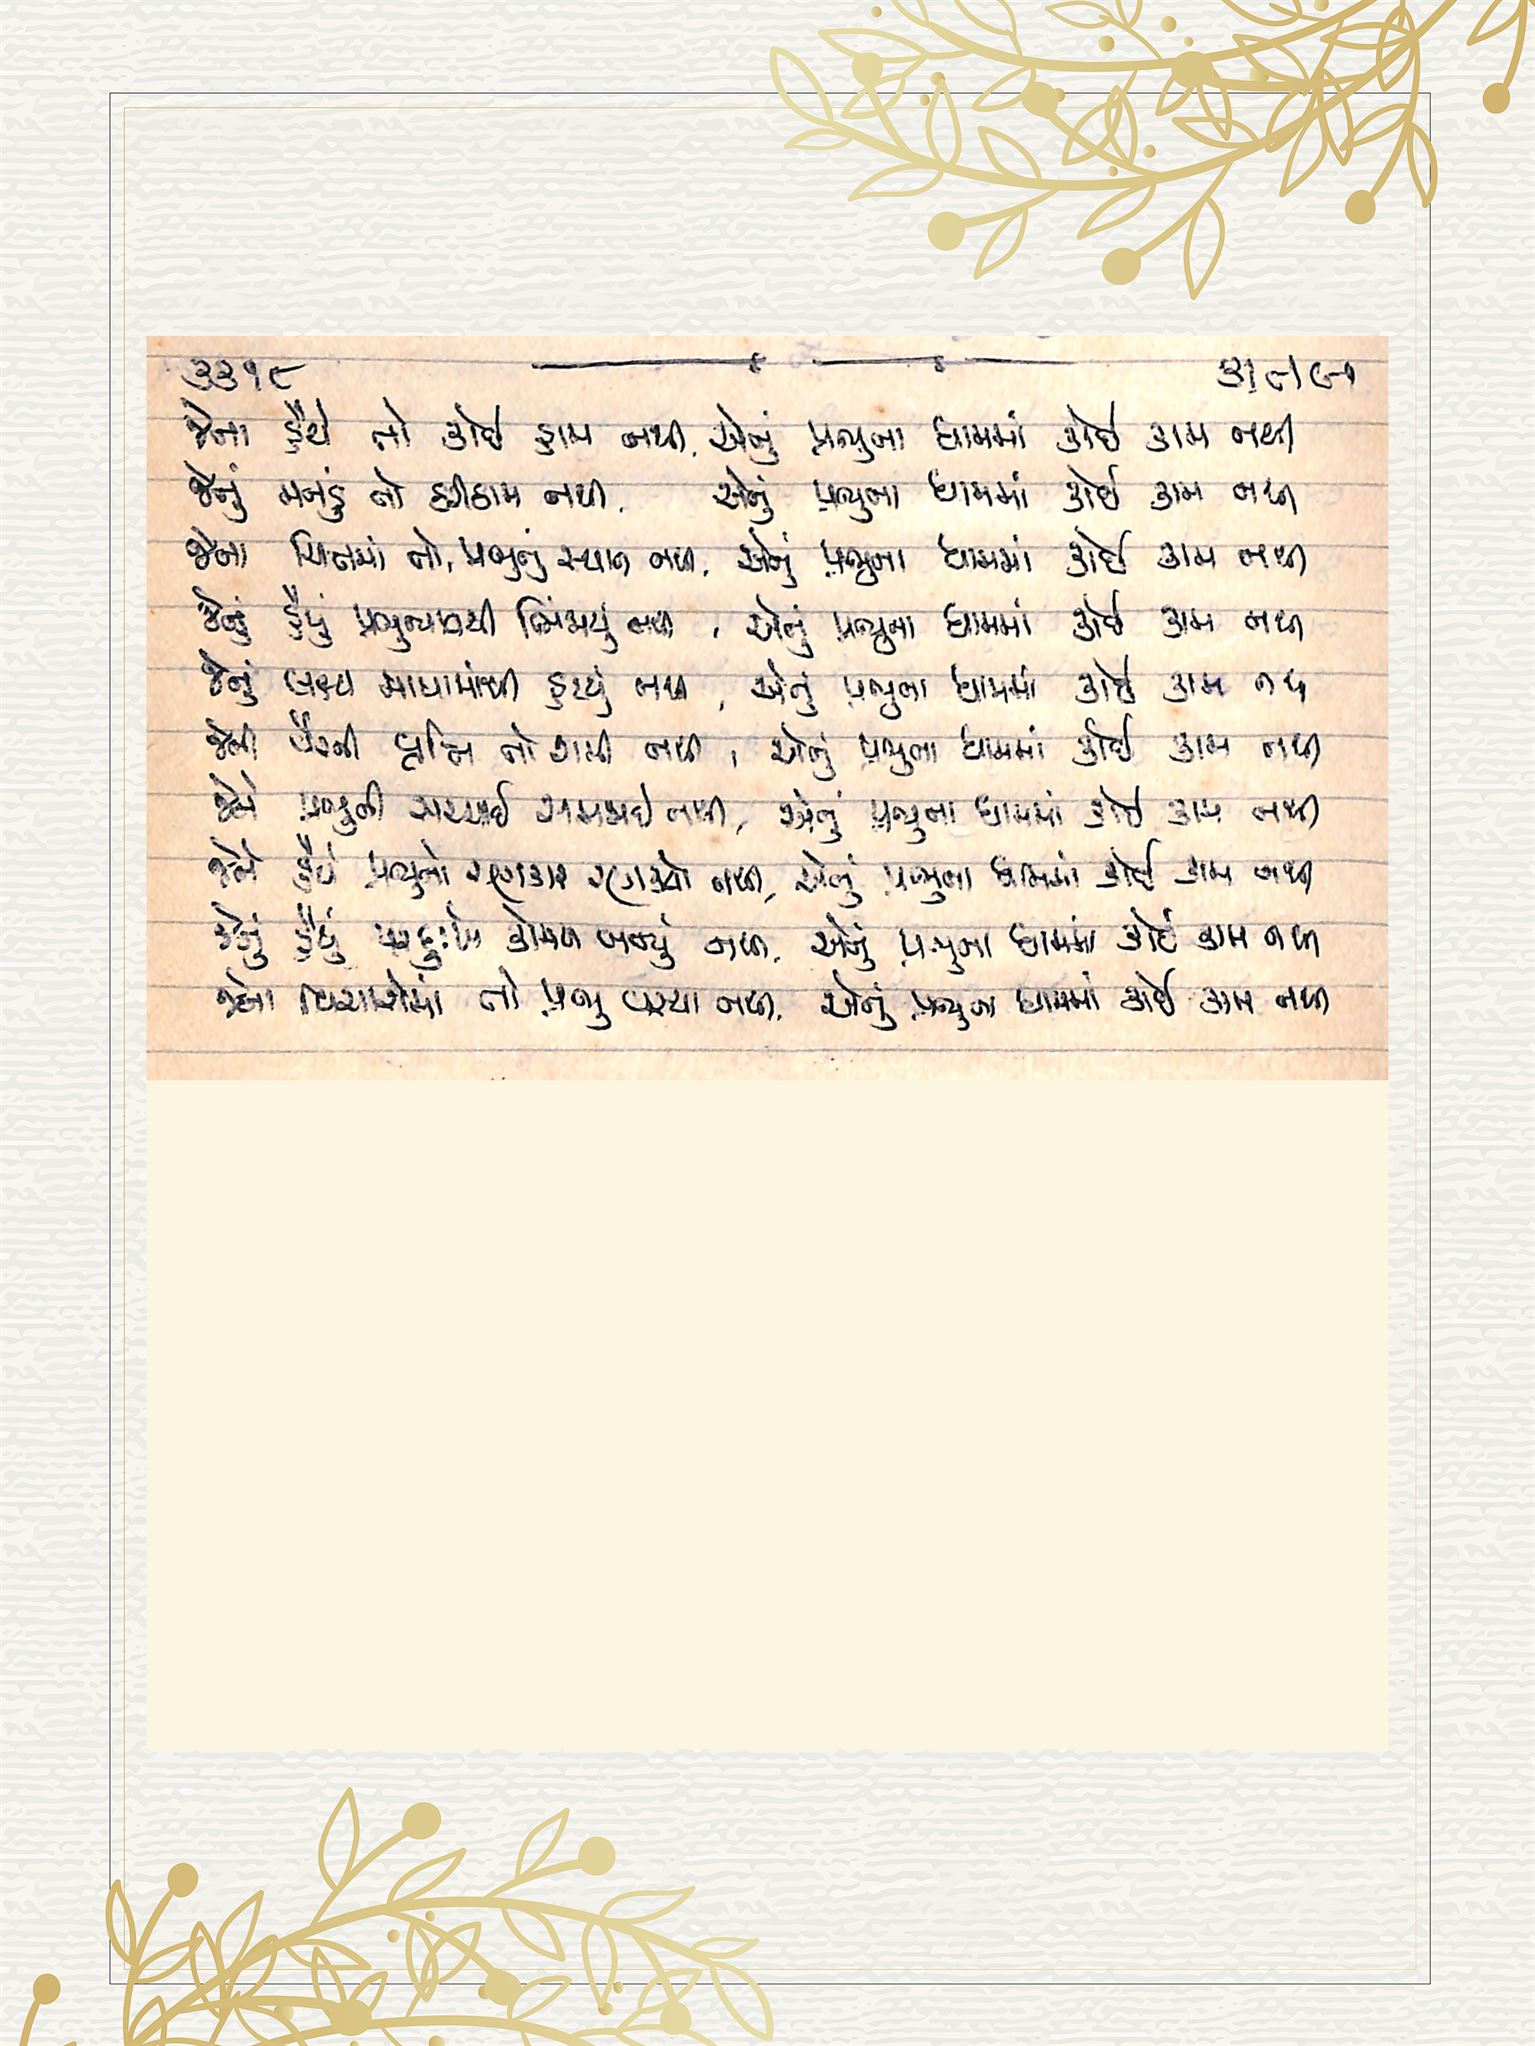 ૩૩૧૮ ૩ા૮ા૯૧
જેના હૈયે તો કોઈ હામ નથી, એનું પ્રભુના ધામમાં કોઈ કામ નથી
જેનું મનડું તો હરીઠામ નથી, એનું પ્રભુના ધામમાં કોઈ કામ નથી
જેના ચિત્તમાં તો, પ્રભુનું સ્થાન નથી, એનું પ્રભુના ધામમાં કોઈ કામ નથી
જેનું હૈયું પ્રભુભાવથી ભિંજાયું નથી, એનું પ્રભુના ધામમાં કોઈ કામ નથી
જેનું લક્ષ્ય માયામાંથી હટયું નથી, એનું પ્રભુના ધામમાં કોઈ કામ નથી
જેની વૈરની અગ્નિ તો શમી નથી, એનું પ્રભુના ધામમાં કોઈ કામ નથી
જેને પ્રભુની સચ્ચાઈ સમજાઈ નથી, એનું પ્રભુના ધામમાં કોઈ કામ નથી
જેને હૈયે પ્રભુનો રણકાર રણક્યો નથી, એનું પ્રભુના ધામમાં કોઈ કામ નથી
જેનું હૈયું પરદુઃખે કોમળ બન્યું નથી, એનું પ્રભુના ધામમાં કોઈ કામ નથી
જેના વિચારોમાં તો પ્રભુ વસ્યા નથી, એનું પ્રભુના ધામમાં કોઈ કામ નથી